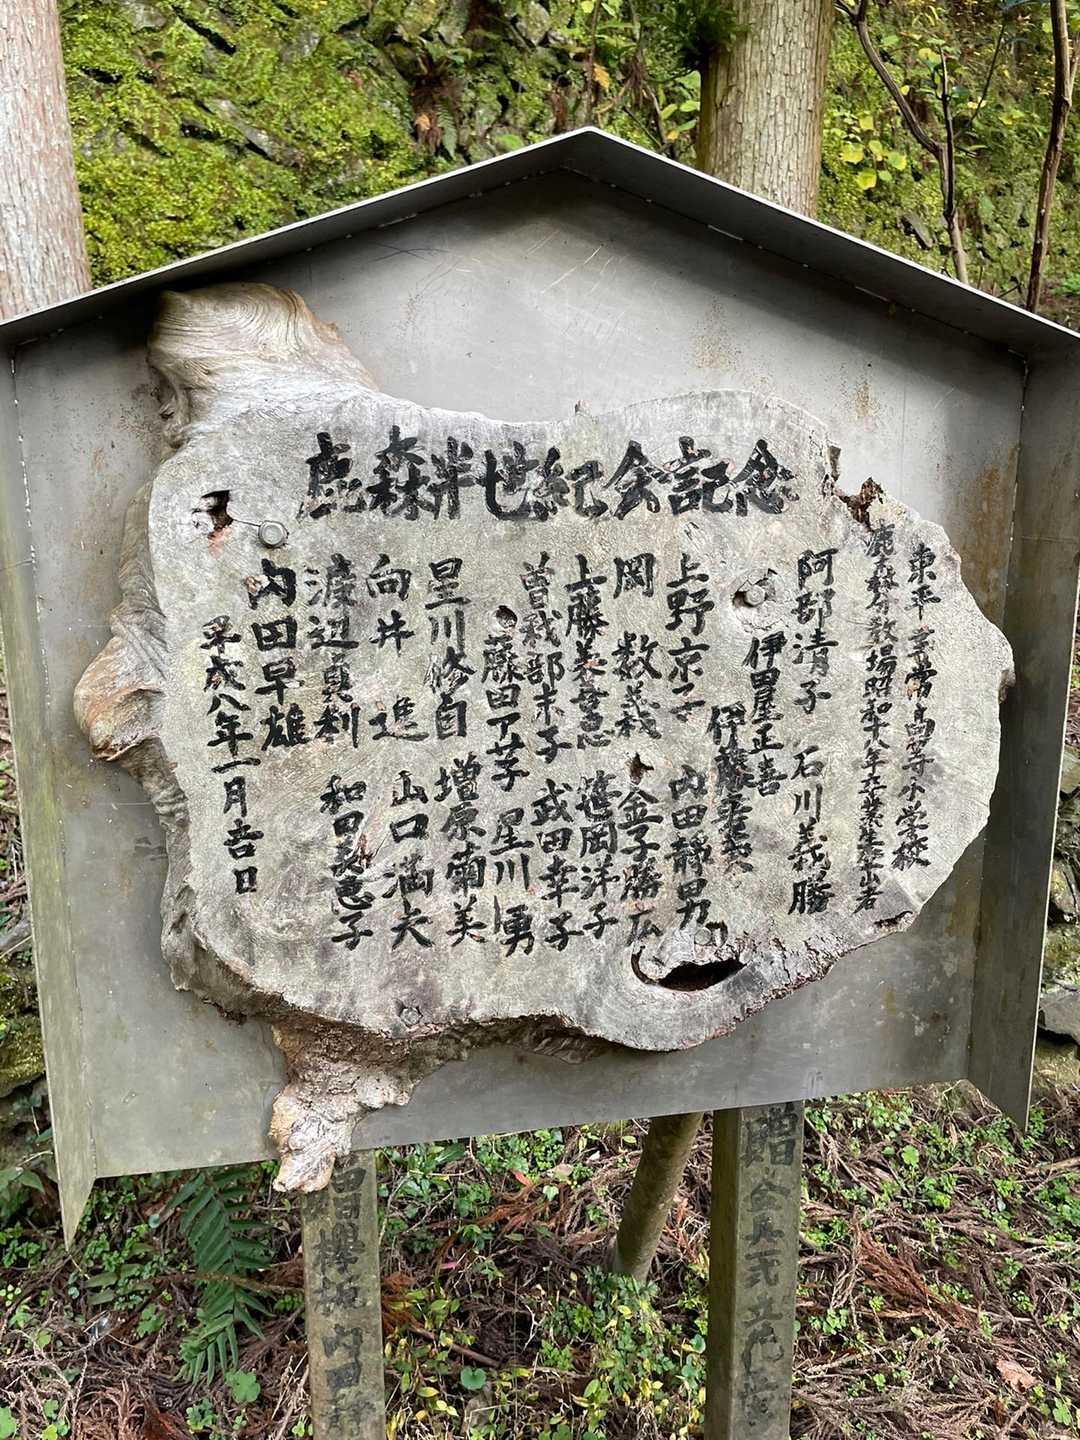 鹿森半世紀会記念
東平尋常高等小学校
鹿森分教場昭和十八年卒業生登山者
阿部清子 石川義勝
伊田屋正喜
伊藤
上野京子 内田静男
岡 数義 金子勝広
上藤美恵 笹岡洋子
曽我部末子 武田幸子
藤田アヤ子 星川 勇
星川修自 増原菊美
向井 進 山口満夫
渡辺真利 和田美恵子
内田早雄
平成八年一月吉日
贈
欅板 内田